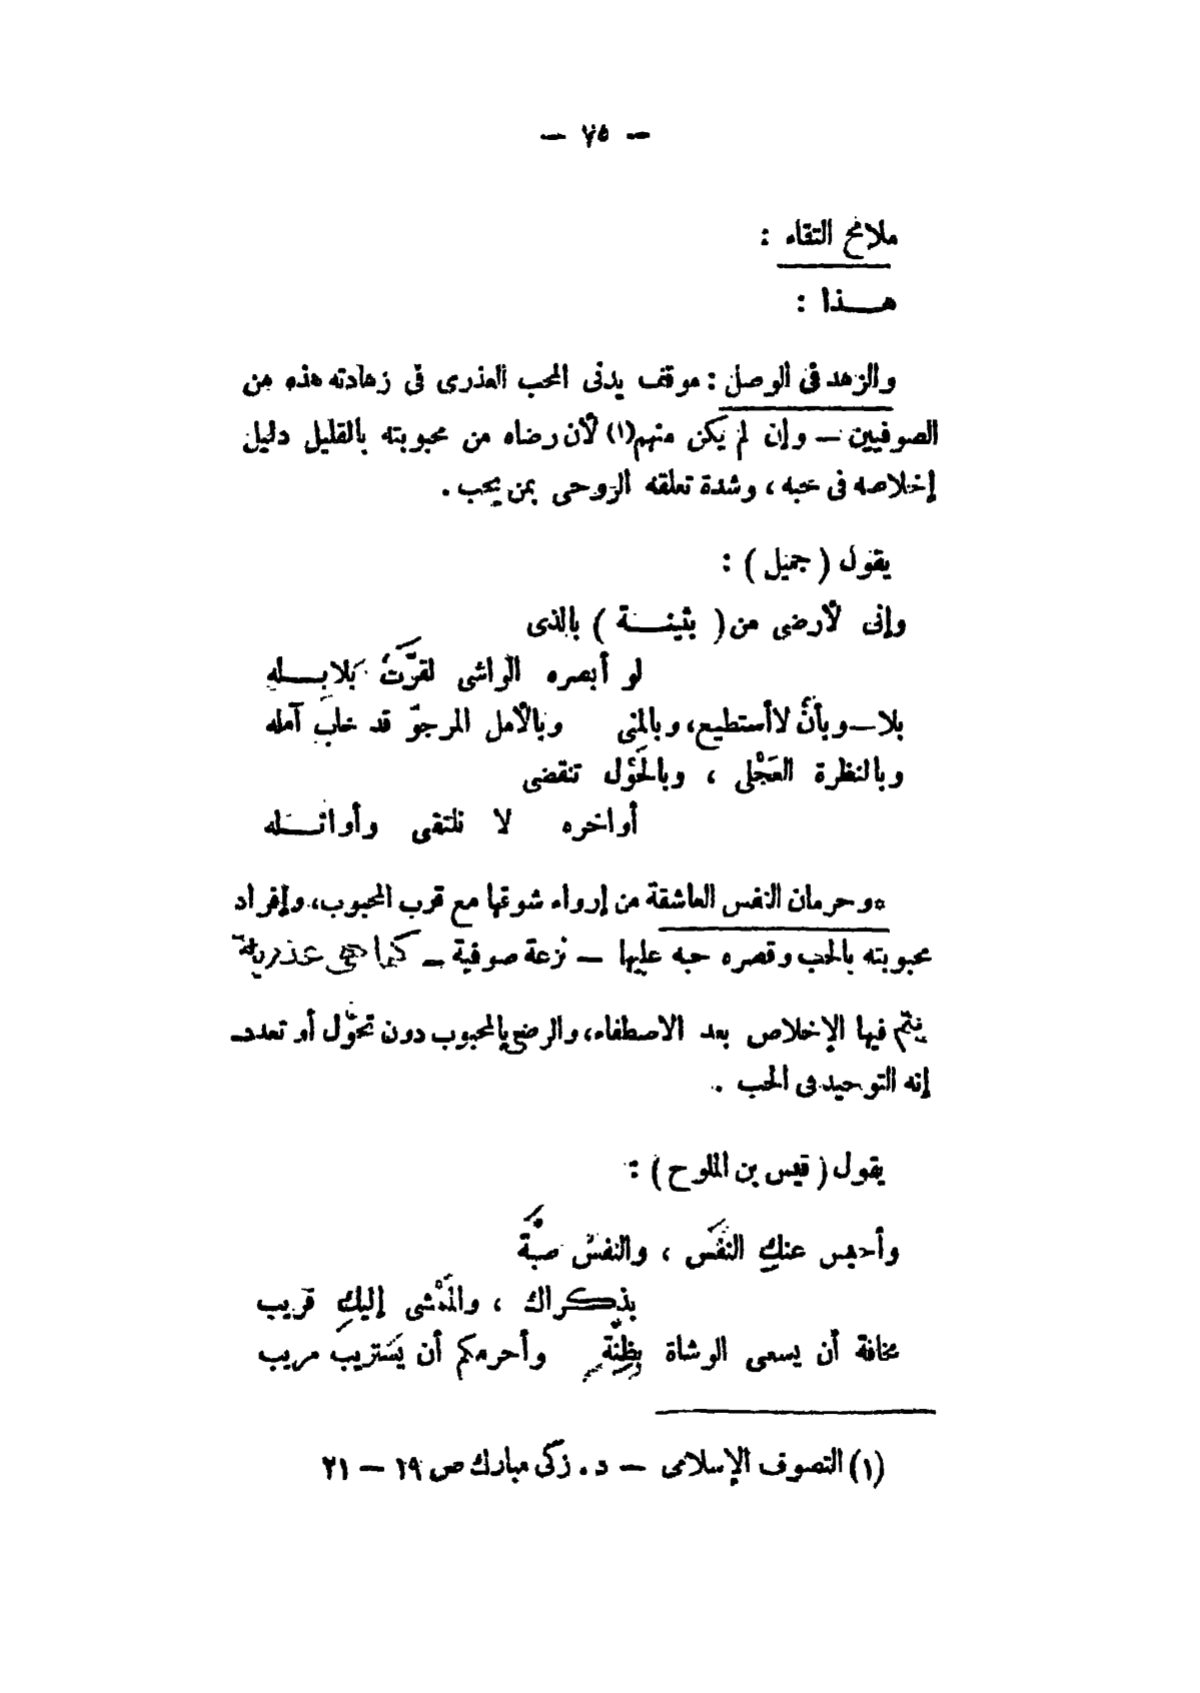 — ٧٥ —
ملامح التقاء :
هـــذا :
والزهد فى الوصل : موقف يدنى المحب العذرى فى زهادته هذه من
الصوفيين — وإن لم يكن منهم(١) لأن رضاه من محبوبته بالقليل دليل
إخلاصه فى حبه ، وشدة تعلقه الروحى بمن يحب .
يقول ( جميل ) :
وإنى لأرضى من ( بثينـــة ) بالذى
لو أبصره الواشى لقرَّت بلابـــله
بلا — وبأنْ لا أستطيع، وبالمنى وبالأمل المرجوّ قد خاب آمله
وبالنظرة العَجْلى ، وبالحَوْل تنقضى
أواخره لا نلتقى وأوائـــله
*وحرمان النفس العاشقة من إرواء شوقها مع قرب المحبوب، وإفراد
محبوبته بالحب وقصره حبه عليها — نزعة صوفية — كما هى عذرية
يتم فيها الإخلاص بعد الاصطفاء، والرضى بالمحبوب دون تحوّل أو تعدد —
إنه التوحيد فى الحب .
يقول ( قيس بن الملوح ) :
وأحبس عنكِ النفَس ، والنفسُ صبَّة
بذكراك ، والممْشى إليكِ قريب
مخافة أن يسعى الوشاة بظِنَّة وأحرمكم أن يَستريب مريب
(١) التصوف الإسلامى — د . زكى مبارك ص ١٩ — ٢١